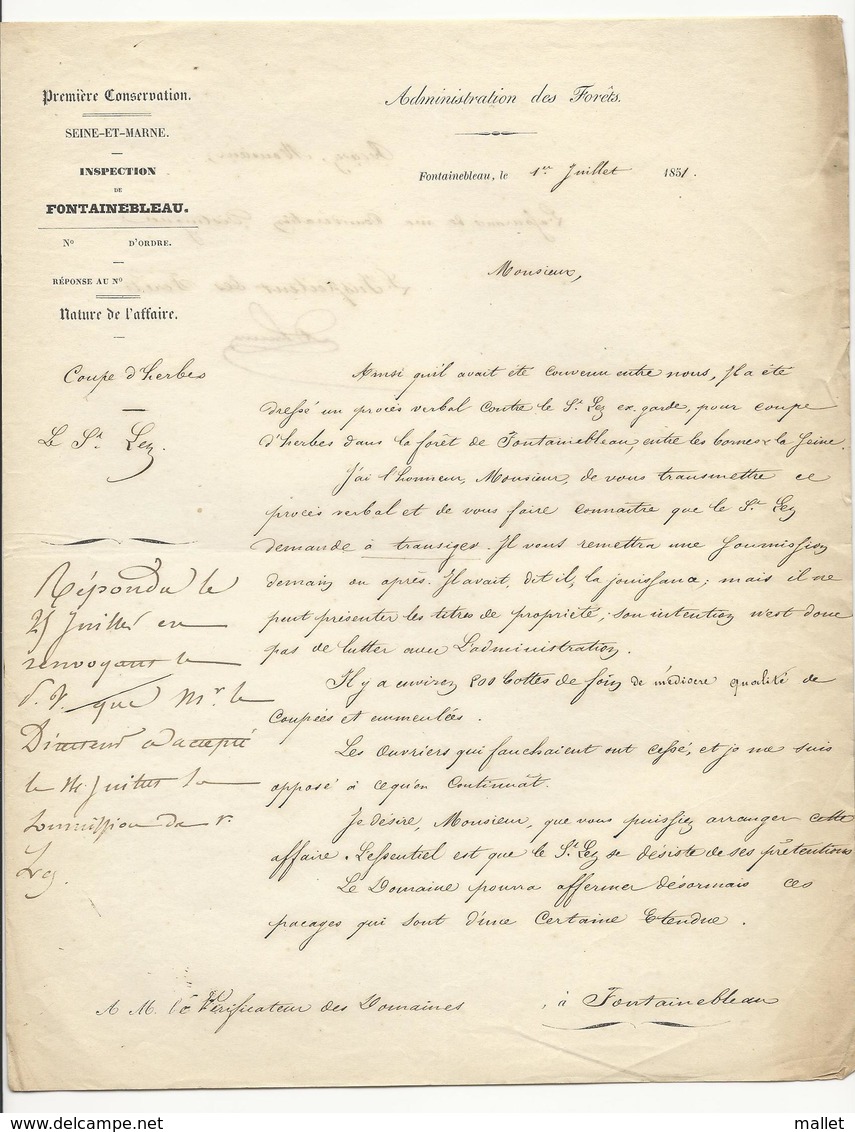 Première Conservation.
SEINE-ET-MARNE.
INSPECTION
DE
FONTAINEBLEAU.
N° D'ORDRE.
RÉPONSE AU N°
Nature de l'affaire.
Coupe d'herbes
Le Sr. Ley.
Administration des Forêts.
Fontainebleau, le 1er Juillet 1851.
Monsieur,
Ainsi qu'il avait été convenu entre nous, Il a été
dressé un procès verbal contre le Sr. Ley ex. garde, pour coupe
d'herbes dans la forêt de Fontainebleau, entre les bornes & la Seine.
J'ai l'honneur, Monsieur, de vous transmettre ce
procès verbal et de vous faire connaître que le Sr. Ley
demande à transiger. Il vous remettra une soumission
demain ou après. Il avait, dit il, la jouissance; mais il ne
peut présenter les titres de propriété; son intention n'est donc
pas de lutter avec L'administration.
Il y a environ 800 bottes de foin de médiocre qualité de
coupées et emmeulées.
Les ouvriers qui fauchaient ont cessé, et je me suis
opposé à ce qu'on continuât.
Je désire, Monsieur, que vous puissiez arranger cette
affaire. L'essentiel est que le Sr. Ley se désiste de ses prétentions
Le Domaine pourra affermer désormais ces
pacages qui sont d'une certaine Etendue.
Répondu le
25 Juillet en
renvoyant le
p. V. que Mr. le
Directeur a accepté
le 14 Juillet la
soumission de
Ley.
A M. le Vérificateur des Domaines, à Fontainebleau
mallet